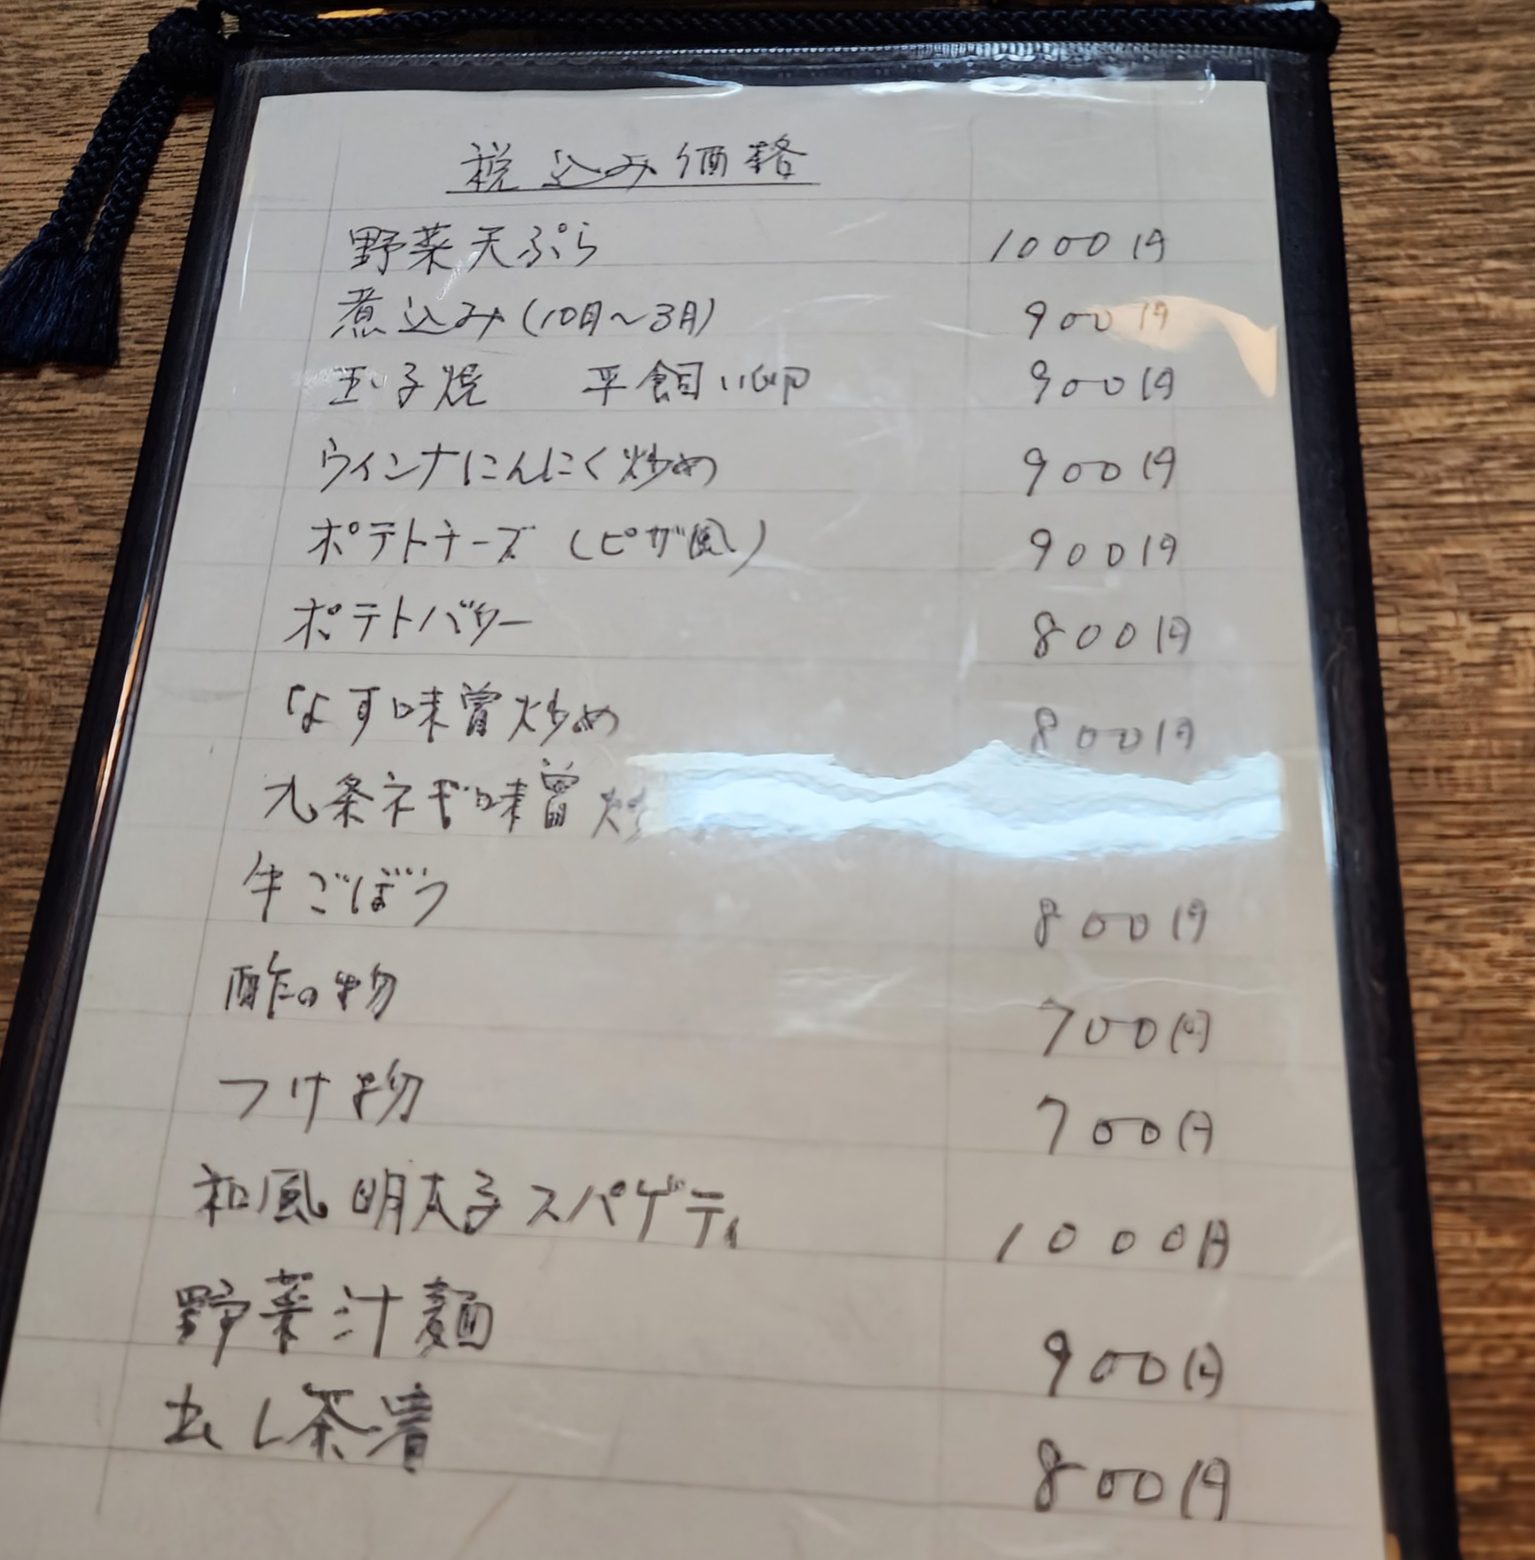 税込み価格
野菜天ぷら 1000円
煮込み(10月~3月) 900円
玉子焼 平飼い卵 900円
ウインナにんにく炒め 900円
ポテトチーズ (ピザ風) 900円
ポテトバター 800円
なす味噌炒め 800円
九条ネギ味噌炒
牛ごぼう 800円
酢の物 700円
つけ物 700円
和風明太子スパゲティ 1000円
野菜汁麺 900円
出し茶漬 800円